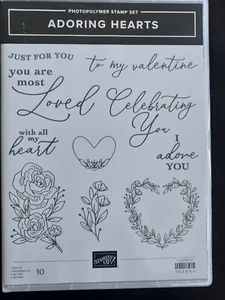 PHOTOPOLYMER STAMP SET
ADORING HEARTS
JUST FOR YOU
to my valentine
you are
most
Loved
Celebrating
You
with all
my
heart
I
adore
YOU
10
STAMPIN' UP!